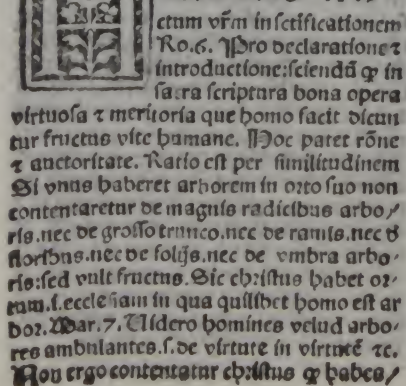 ctum vr̄m in sctificationem
Ro.6. Pro declaratione ⁊
introductione: sciendū ꝙ in
sacra scriptura bona opera
virtuosa ⁊ meritoria que homo facit dicun
tur fructus vite humane. Hoc patet rōne
⁊ auctoritate. Ratio est per similitudinem
Si vnus haberet arborem in orto suo non
contentaretur de magnis radicibus arbo/
ris. nec de grosso trunco. nec de ramis. nec d̄
floribus. nec de folijs. nec de vmbra arbo-
ris: sed vult fructus. Sic christus habet or-
tum .s. ecclesiam in qua quilibet homo est ar
bor. Mar. 7. Uidero homines velud arbo-
res ambulantes .s. de virtute in virtutē ⁊c.
Non ergo contentatur christus ꝙ habes/